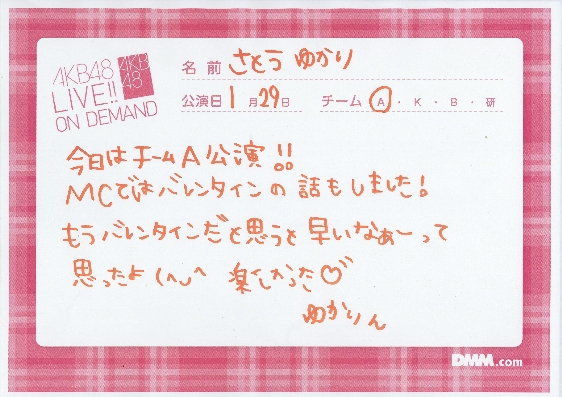 AKB48
LIVE!!
ON DEMAND
AKB
48
名前 さとう ゆかり
公演日 1月29日 チーム A・K・B・研
今日はチームA公演!!
MCではバレンタインの話もしました!
もうバレンタインだと思うと早いなぁーって
思ったよ(^◡^ 楽しかった♡
ゆかりん
DMM.com